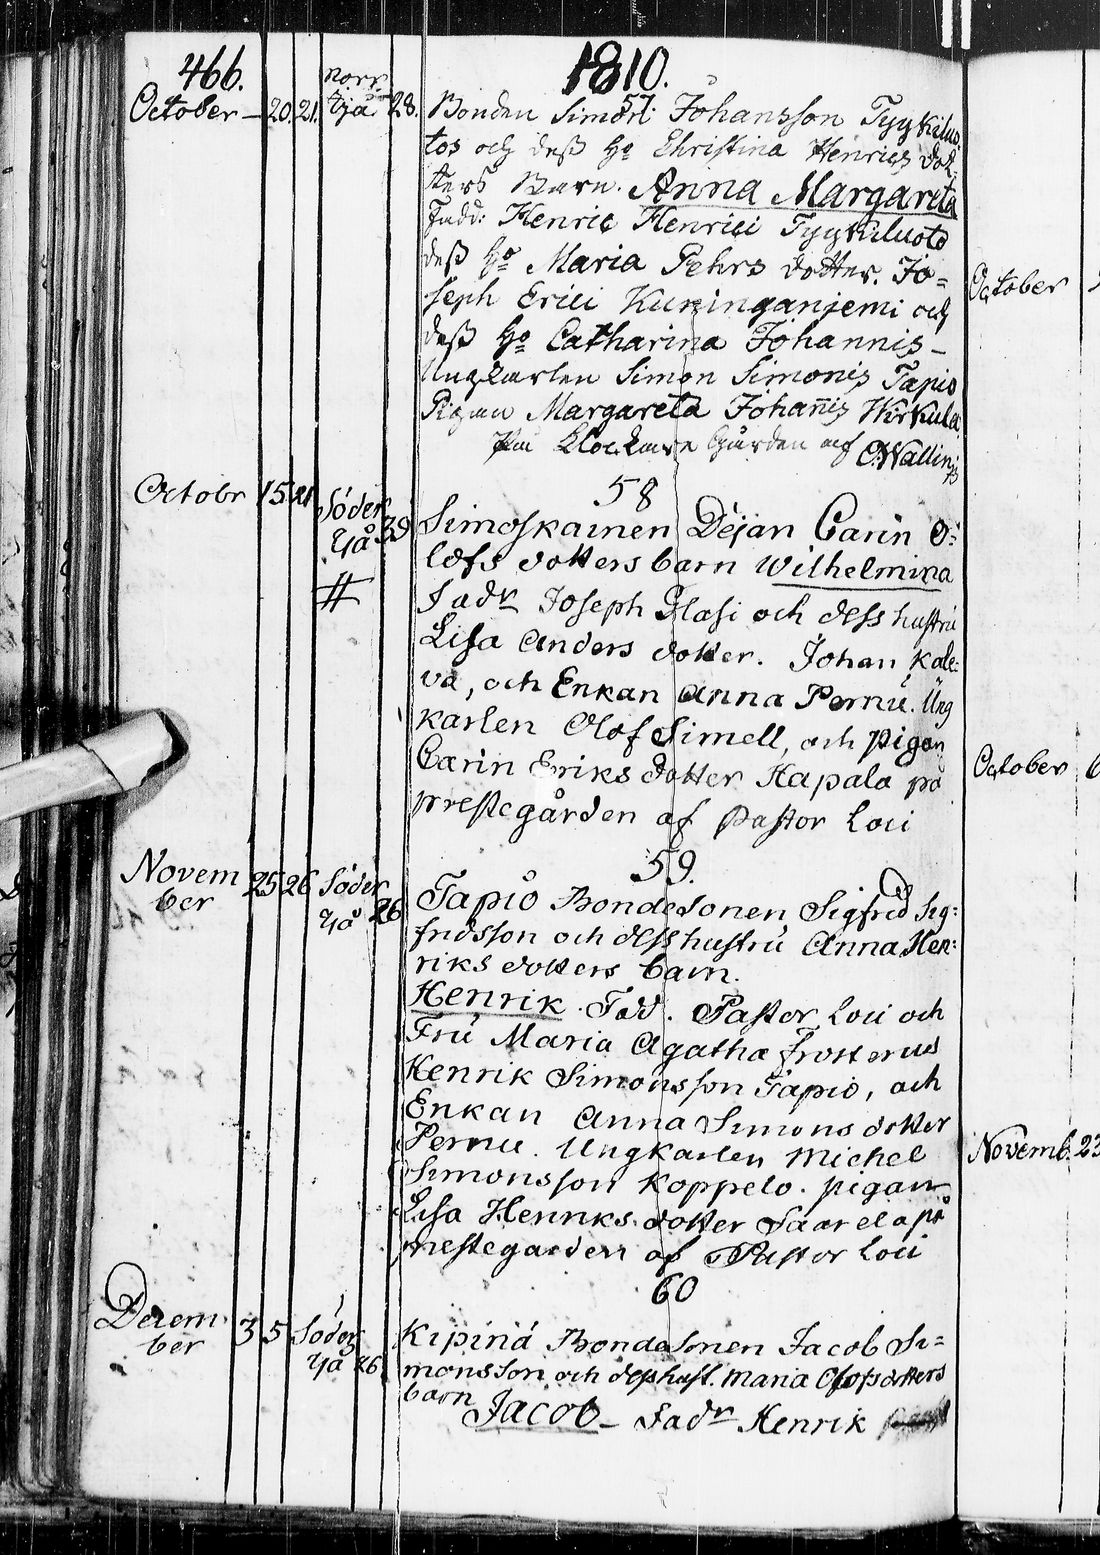 466. 1810.
October 20. 21. norr Ijå 28. 57.
Bonden Simon Johansson Tyykiluo
tos och dess Ho Christina Henrics dot
ters Barn. Anna Margareta
Fadd: Henric Henrici Tyykiluoto
dess Ho Maria Pehrs dotter. Jo=
seph Erici Kuninganjemi och
dess Ho Catharina Johannis
Ungkarlen Simon Simonis Tapio
Pigan Margareta Johañis Wirkula
Klockare Gården af C. Wallin
58
Octobr 15 21 Söder Yå 39
#
Simoskainen Dejan Carin O=
lofs dotters barn Wilhelmina
Fadr Joseph Olasi och dess hustru
Lisa Anders dotter. Johan Kale=
va, och Enkan Anna Pernu. Ung
karlen Olof Simell, och pigan
Carin Eriks dotter Hapala på
prestegården af Pastor Loci
59.
November 25 26 Söder Yå 26
Tapio Bondesonen Sigfrid Sig=
fridsson och dess hustru Anna Hen=
riks dotters barn.
Henrik. Fad. Pastor Loci och
Fru Maria Agatha Frosterus
Henrik Simonsson Tapio, och
Enkan Anna Simons dotter
Pernu. Ungkarlen Michel
Simonsson Koppelo. pigan
Lisa Henriks dotter Saarela på
prestegården af Pastor Loci
60
December 3 5 Söder Yå 26
Kipinä Bondesonen Jacob Si=
monsson och dess hust. Maria Olofsdotters
barn
Jacob - Fadr Henrik
October
October 6
Novemb. 23